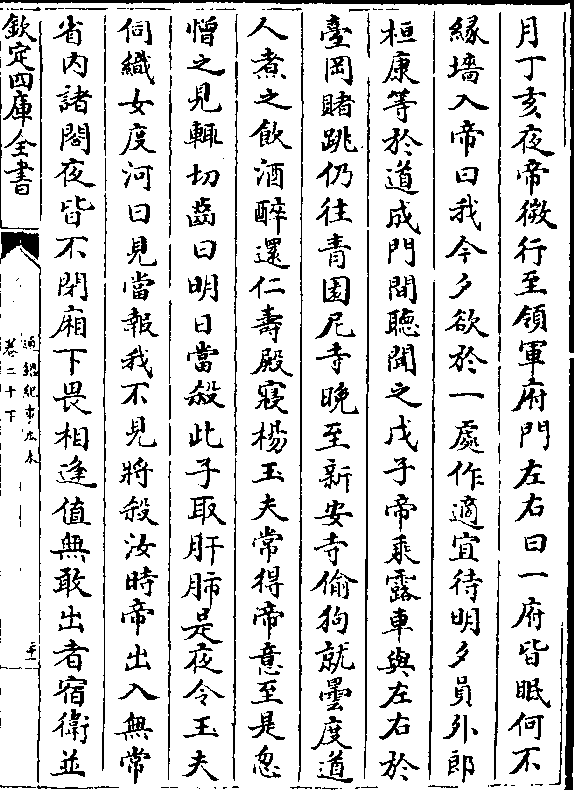 月丁亥夜帝微行至領軍府門左右曰一府皆眠何不
緣墻入帝曰我今夕欲於一處作適宜待明夕員外郎
桓康等於道成門間聽聞之戊子帝乘露車與左右於
臺岡賭跳仍往青園尼寺晚至新安寺偷狗就曇度道
人煮之飲酒醉還仁壽殿寢楊玉夫常得帝意至是忽
憎之見輒切齒曰明日當殺此子取肝肺是夜令玉夫
伺織女度河曰見當報我不見將殺汝時帝出入無常
省內諸閤夜皆不閉廂下畏相逢值無敢出者宿衛並
欽定四庫全書
通鑑紀事本末
卷二十下